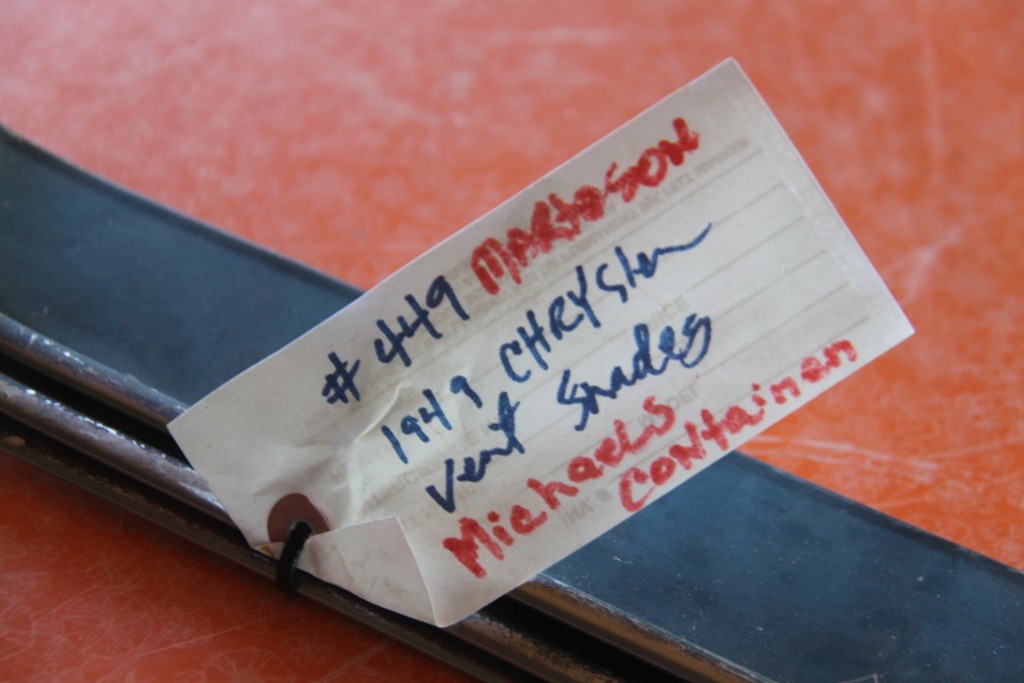 # 449 MARTOSON
1949 CHRYSler
Vent Shades
Michaels
Container